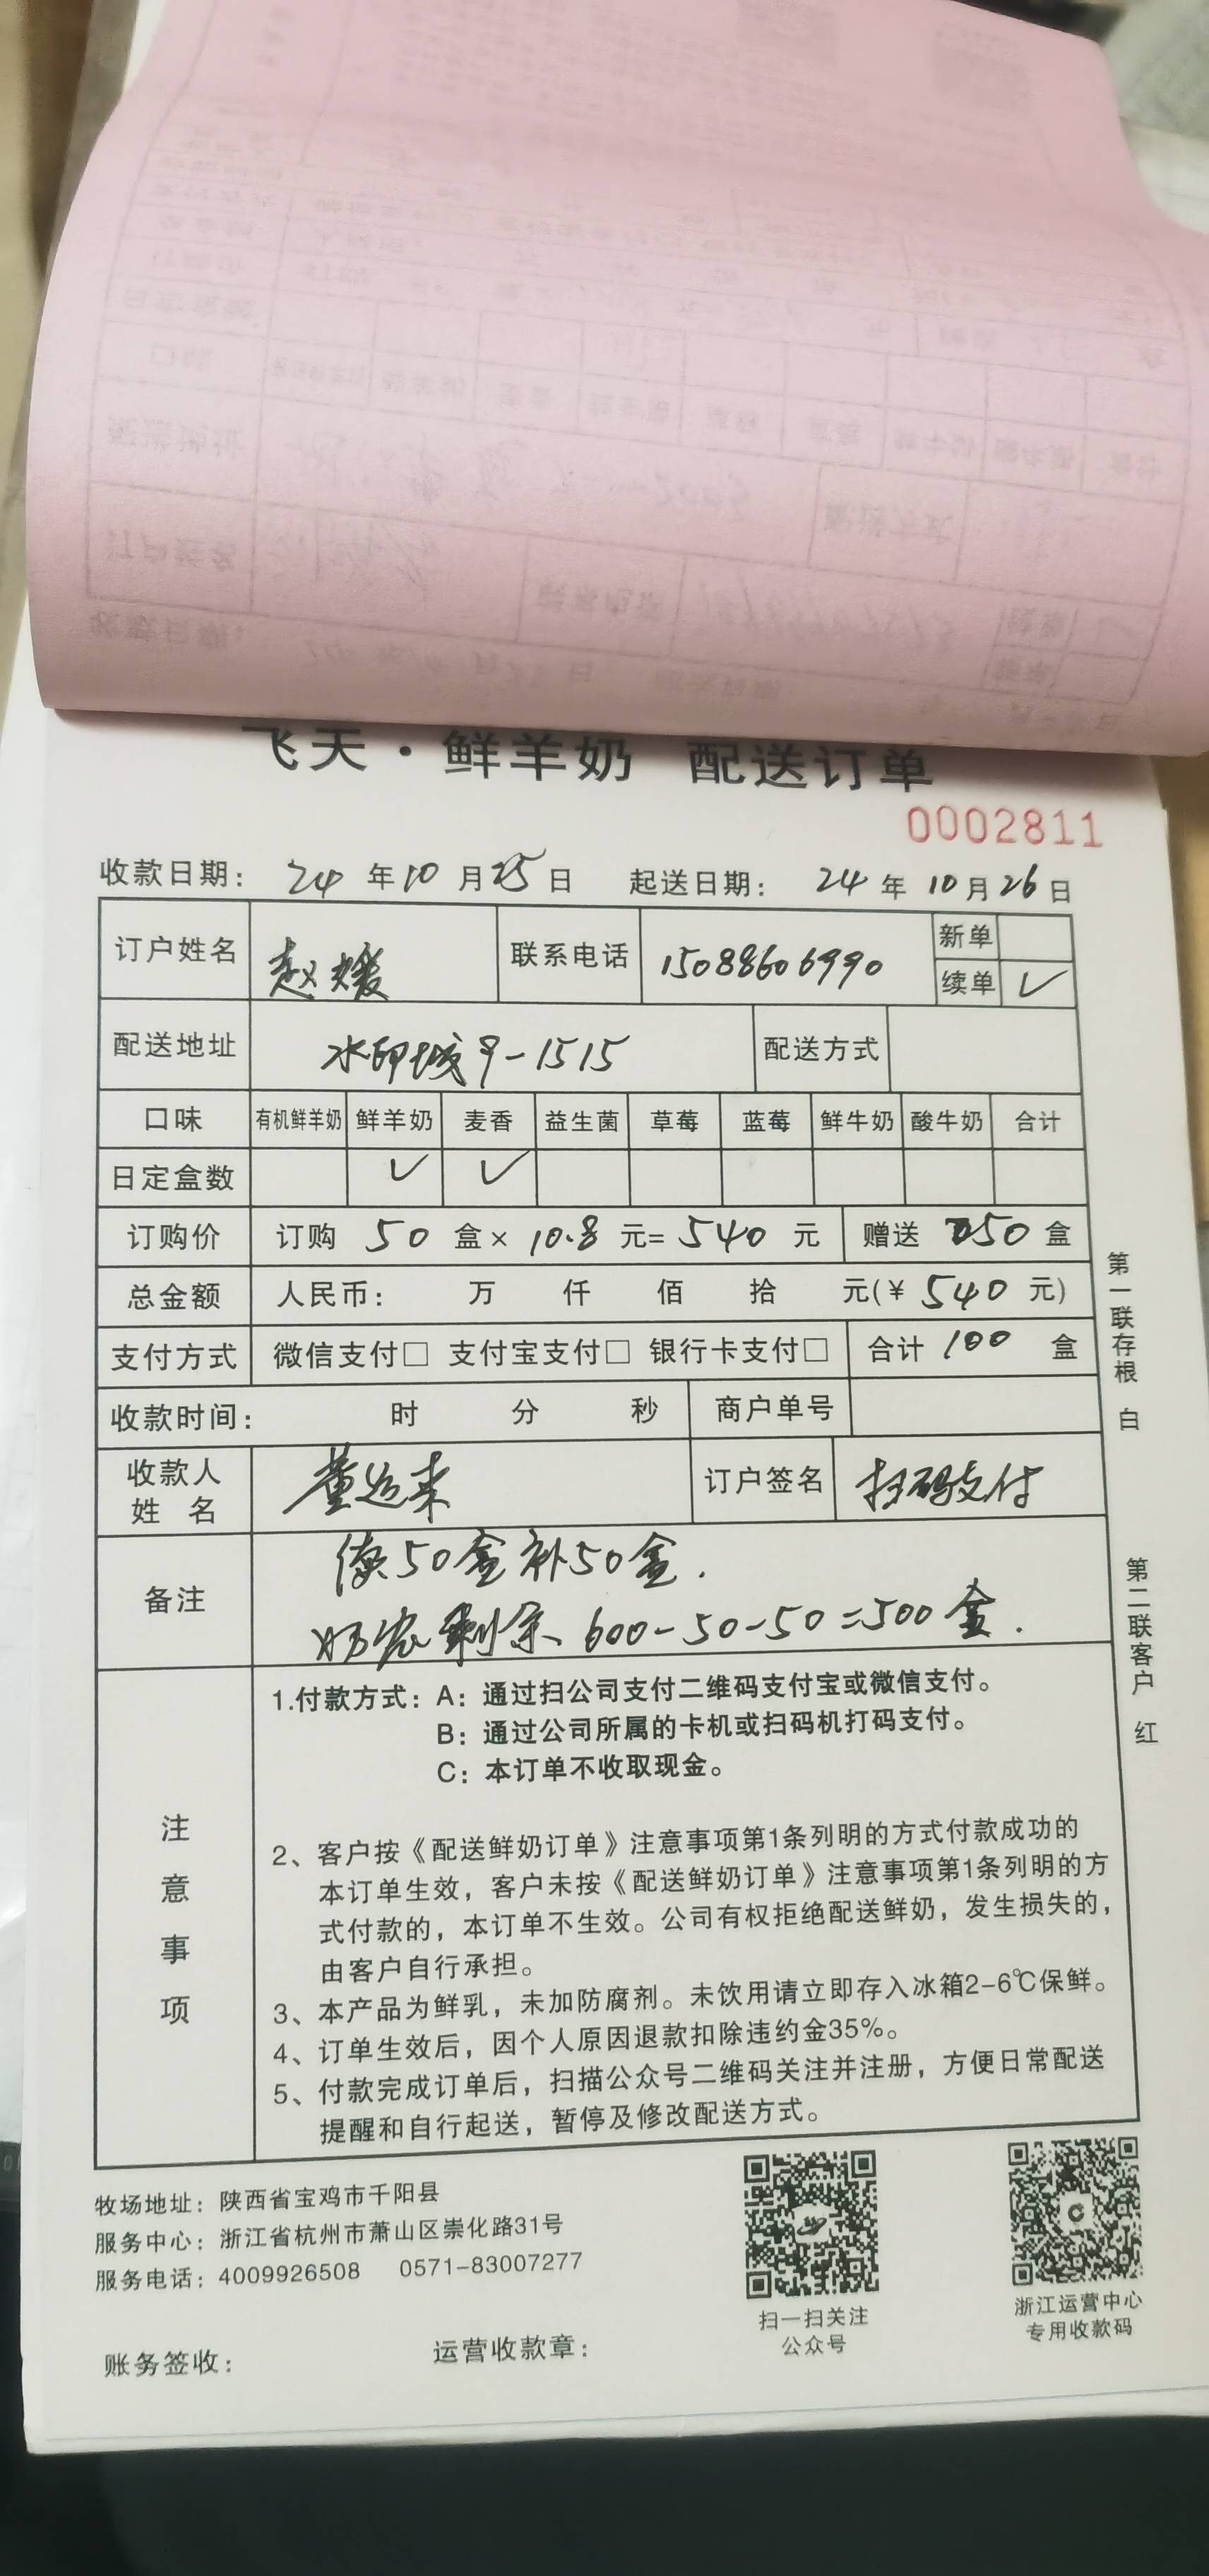 飞天·鲜羊奶 配送订单
0002811
收款日期： 24 年 10 月 25 日 起送日期： 24 年 10 月 26 日
订户姓名 赵媛 联系电话 15088606990 新单
续单 ✓
配送地址 水印城9-1515 配送方式
口味 有机鲜羊奶 鲜羊奶 麦香 益生菌 草莓 蓝莓 鲜牛奶 酸牛奶 合计
日定盒数 ✓ ✓
订购价 订购 50 盒× 10.8 元= 540 元 赠送 50 盒
总金额 人民币： 万 仟 佰 拾 元(¥ 540 元)
支付方式 微信支付□ 支付宝支付□ 银行卡支付□ 合计 100 盒
收款时间： 时 分 秒 商户单号
收款人
姓 名 董运来 订户签名 扫码支付
备注 续50盒补50盒.
奶农剩余 600-50-50=500盒.
注意事项
1.付款方式：A：通过扫公司支付二维码支付宝或微信支付。
B：通过公司所属的卡机或扫码机打码支付。
C：本订单不收取现金。
2、客户按《配送鲜奶订单》注意事项第1条列明的方式付款成功的
本订单生效，客户未按《配送鲜奶订单》注意事项第1条列明的方
式付款的，本订单不生效。公司有权拒绝配送鲜奶，发生损失的，
由客户自行承担。
3、本产品为鲜乳，未加防腐剂。未饮用请立即存入冰箱2-6℃保鲜。
4、订单生效后，因个人原因退款扣除违约金35%。
5、付款完成订单后，扫描公众号二维码关注并注册，方便日常配送
提醒和自行起送，暂停及修改配送方式。
第一联存根 白
第二联客户 红
牧场地址：陕西省宝鸡市千阳县
服务中心：浙江省杭州市萧山区崇化路31号
服务电话：4009926508 0571-83007277
扫一扫关注
公众号
浙江运营中心
专用收款码
账务签收： 运营收款章：